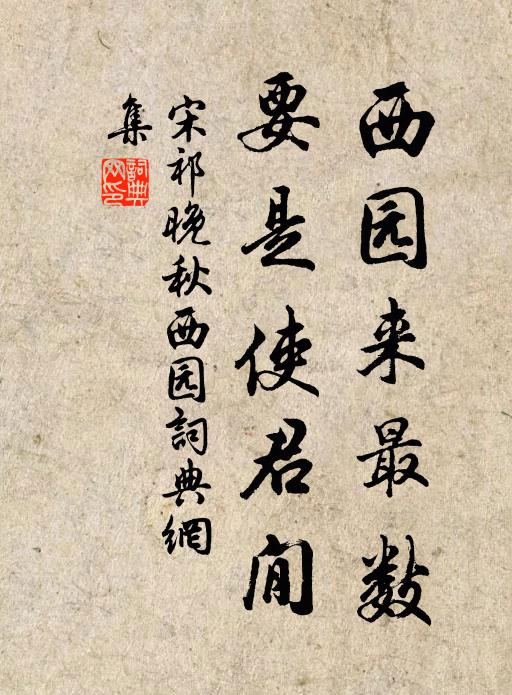 西园来最数
要是使君闲
宋祁晚秋西园詞典網
集
詞典网印